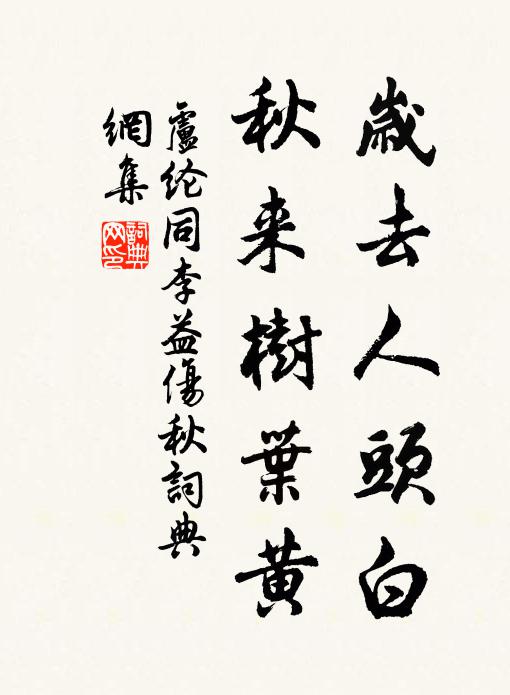 歲去人頭白
秋来樹葉黄
盧纶同李益傷秋詞典
網集
詞典
网印